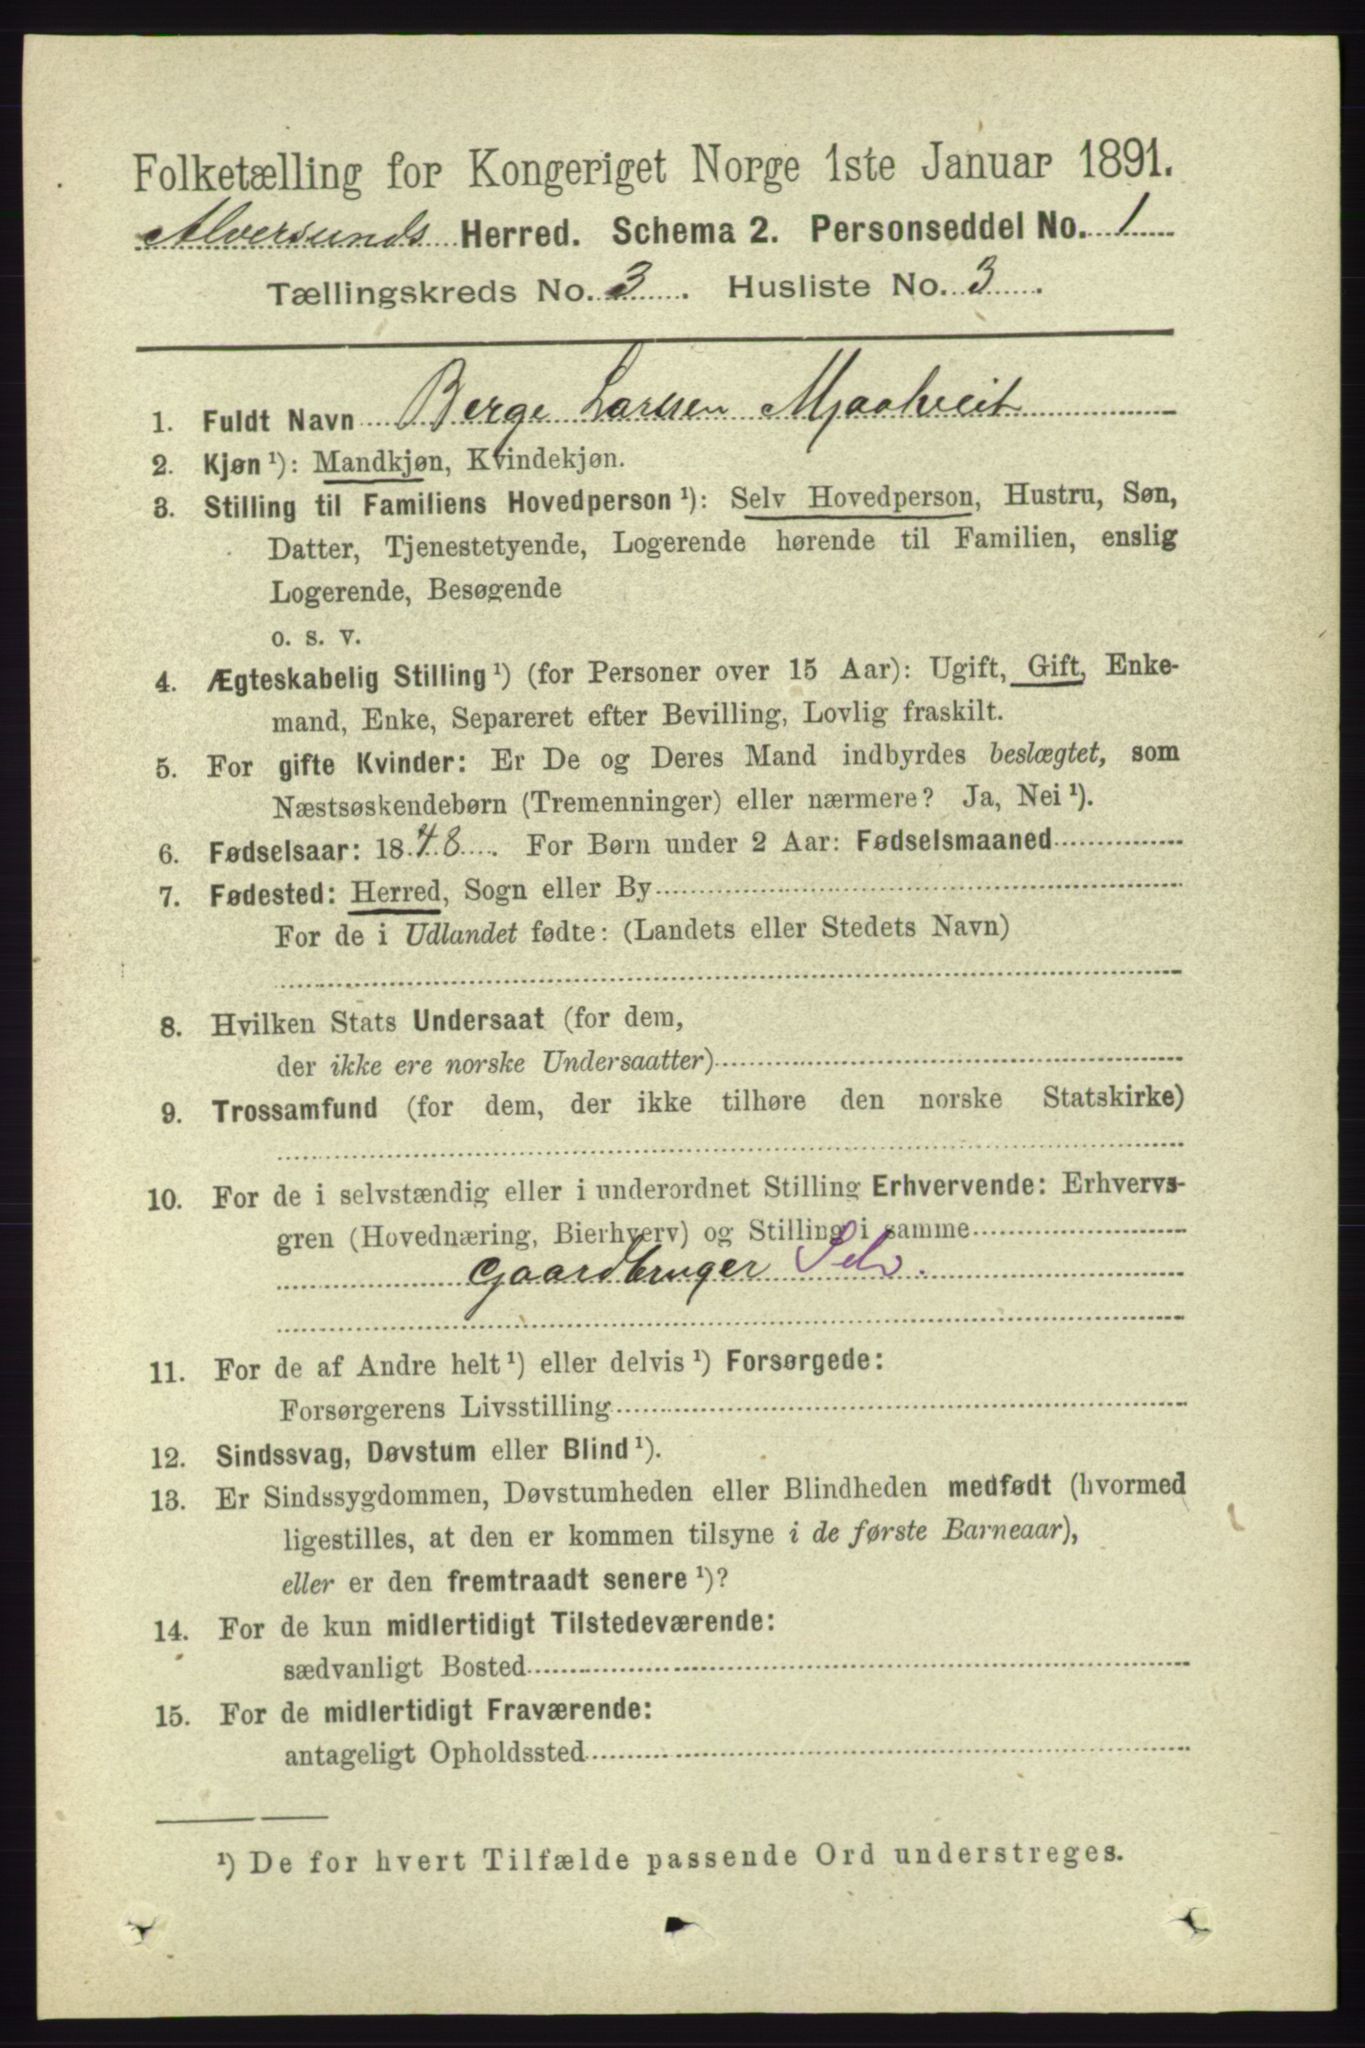 Folketælling for Kongeriget Norge 1ste Januar 1891.
Alversunds Herred. Schema 2. Personseddel No. 1
Tællingskreds No. 3. Husliste No. 3.
1. Fuldt Navn Berge Larssen Mjaatveit
2. Kjøn ¹): Mandkjøn, Kvindekjøn.
3. Stilling til Familiens Hovedperson ¹): Selv Hovedperson, Hustru, Søn,
Datter, Tjenestetyende, Logerende hørende til Familien, enslig
Logerende, Besøgende
o. s. v.
4. Ægteskabelig Stilling ¹) (for Personer over 15 Aar): Ugift, Gift, Enke-
mand, Enke, Separeret efter Bevilling, Lovlig fraskilt.
5. For gifte Kvinder: Er De og Deres Mand indbyrdes beslægtet, som
Næstsøskendebørn (Tremenninger) eller nærmere? Ja, Nei ¹).
6. Fødselsaar: 1848. For Børn under 2 Aar: Fødselsmaaned
7. Fødested: Herred, Sogn eller By
For de i Udlandet fødte: (Landets eller Stedets Navn)
8. Hvilken Stats Undersaat (for dem,
der ikke ere norske Undersaatter)
9. Trossamfund (for dem, der ikke tilhøre den norske Statskirke)
10. For de i selvstændig eller i underordnet Stilling Erhvervende: Erhvervs-
gren (Hovednæring, Bierhverv) og Stilling i samme
Gaardbruger Selv.
11. For de af Andre helt ¹) eller delvis ¹) Forsørgede:
Forsørgerens Livsstilling
12. Sindssvag, Døvstum eller Blind ¹).
13. Er Sindssygdommen, Døvstumheden eller Blindheden medfødt (hvormed
ligestilles, at den er kommen tilsyne i de første Barneaar),
eller er den fremtraadt senere ¹)?
14. For de kun midlertidigt Tilstedeværende:
sædvanligt Bosted
15. For de midlertidigt Fraværende:
antageligt Opholdssted
¹) De for hvert Tilfælde passende Ord understreges.